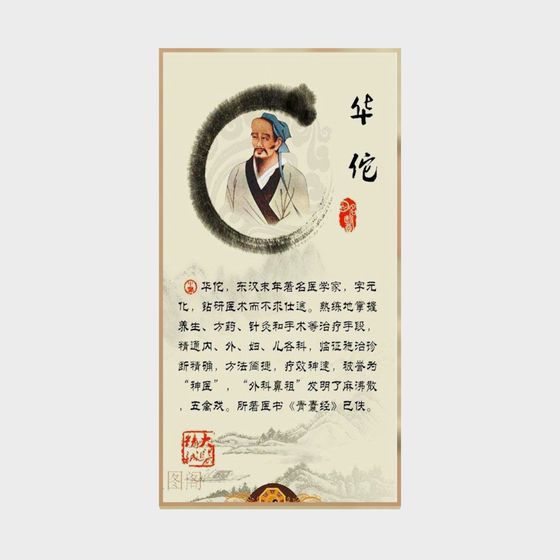 华佗
华佗，东汉末年著名医学家，字元
化，钻研医术而不求仕途。熟练地掌握
养生、方药、针灸和手术等治疗手段，
精通内、外、妇、儿各科，临证施治诊
断精确，方法简捷，疗效神速，被誉为
“神医”，“外科鼻祖”发明了麻沸散
，五禽戏。所著医书《青囊经》已佚。
图阁